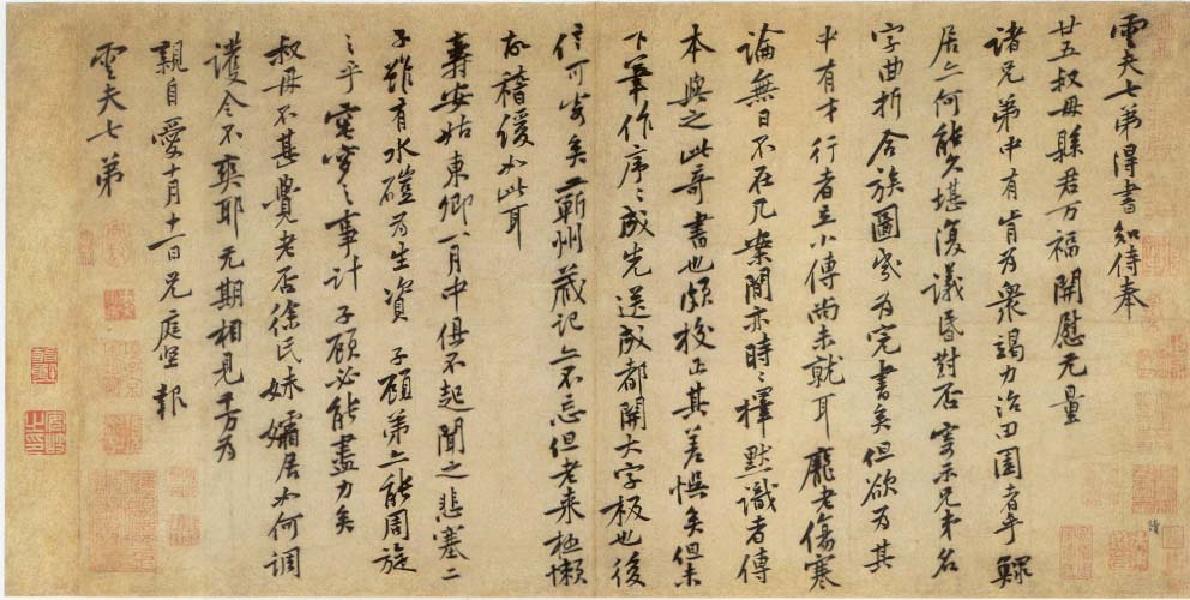 雲夫七弟得書知侍奉
廿五叔母縣君万福開慰无量
諸兄弟中有肯為衆竭力治田園者乎鰥
居亦何能久堪復議昏對否寄示兄弟名
字曲折合族圖歲為完書矣但欲為其
中有才行者立小傳尚未就耳龐老傷寒
論無日不在几案間亦時〻擇默識者傳
本與之此奇書也頗校正其差悞矣但未
下筆作序〻成先送成都開大字板也後
信可寄矣蘄州藏記亦不忘但老來極懶
故稽緩如此耳
壽安姑東卿一月中俱不起聞之悲塞二
子雖有水磑為生資子顧弟亦能周旋
之乎窀穸之事計子顧必能盡力矣
叔母不甚覺老否徐氏妹孀居如何調
護令不爽耶无期相見千万為
親自愛十月十一日兄庭堅報
雲夫七弟